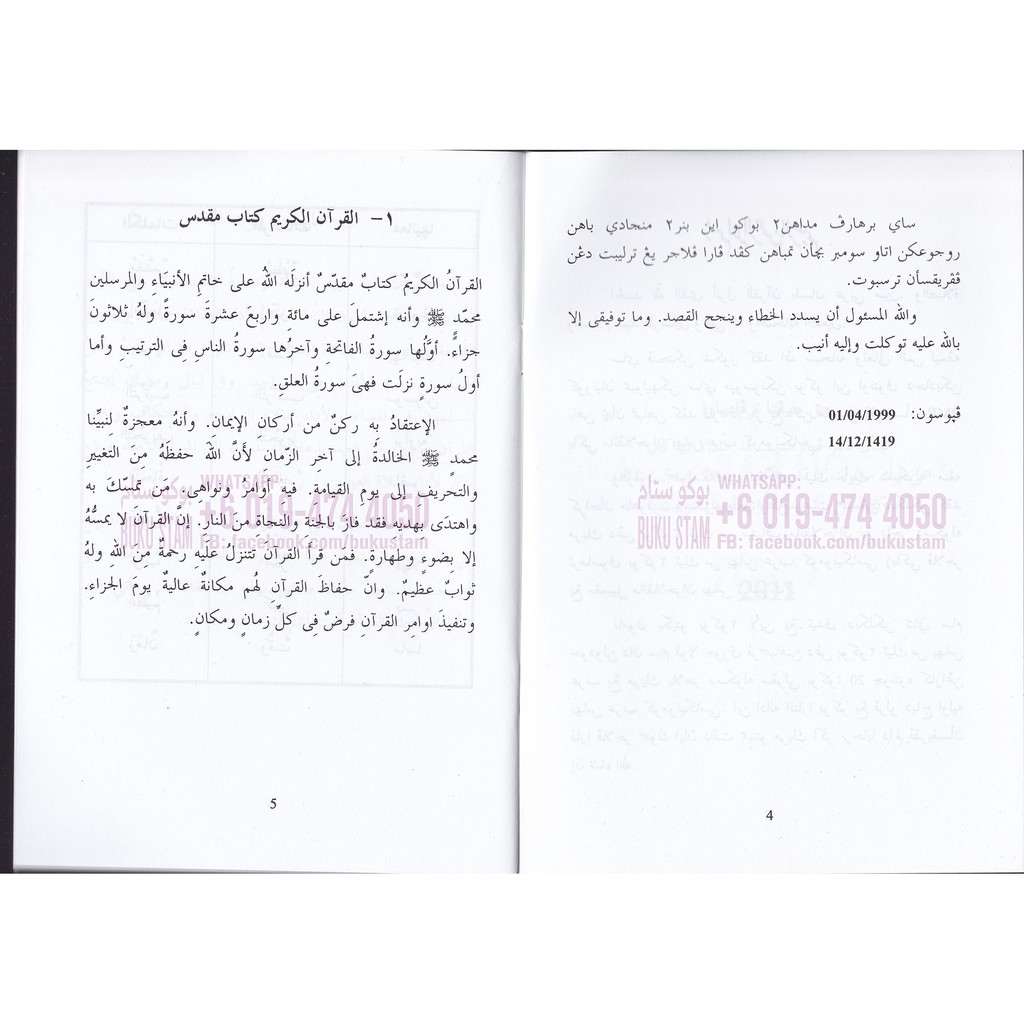 ساي برهارڤ مداهن٢ بوكو اين بنر٢ منجادي باهن
روجوعكن اتاو سومبر بچأن تمباهن كڤد ڤارا ڤلاجر يڠ ترليبت دڠن
ڤڤريقسأن ترسبوت.
والله المسئول أن يسدد الخطاء وينجح القصد. وما توفيقى إلا
بالله عليه توكلت وإليه أنيب.
ڤپوسون: 01/04/1999
14/12/1419
بوكو ستام
BUKU STAM
WHATSAPP:
+6 019-474 4050
FB: facebook.com/bukustam
4
١- القرآن الكريم كتاب مقدس
القرآنُ الكريمُ كتابٌ مقدّسٌ أنزله اللهُ على خاتمِ الأنبيَاءِ والمرسلين
محمّدٍ ﷺ وأنه إشتملَ على مائةِ واربعَ عشرةَ سورةً ولهُ ثلاثونَ
جزاءً. أوّلُها سورةُ الفاتحةِ وآخرُها سورةُ الناسِ فِى الترتيبِ وأما
أولُ سورةٍ نزلَت فهىَ سورةُ العلقِ.
الإعتقادُ بِه ركنٌ من أركانِ الإيمانِ. وأنهُ معجزةٌ لِنبيِّنا
محمدٍ ﷺ الخالدةُ إلى آخرِ الزّمانِ لأَنَّ اللهَ حفظَهُ مِنَ التغييرِ
والتحريفِ إلى يومِ القيامةِ. فيهِ أوامرُ ونواهِى. مَن تمسّكَ به
واهتدَى بِهديه فقد فازَ بالجنة والنجاةِ منَ النارِ. إنَّ القرآنَ لا يمسُّهُ
إلا بِضوءٍ وطهارةٍ. فمَن قرأَ القرآنَ تتنزلُ عليهِ رحمةٌ مِنَ اللهِ ولهُ
ثوابٌ عظيمٌ. وانّ حفاظَ القرآنِ لَهُم مكانةٌ عاليةٌ يومَ الجزاءِ.
وتنفيذَ اوامِرِ القرآنِ فرضٌ فِى كلِّ زمانٍ ومكانٍ.
بوكو ستام
BUKU STAM
WHATSAPP:
+6 019-474 4050
FB: facebook.com/bukustam
5